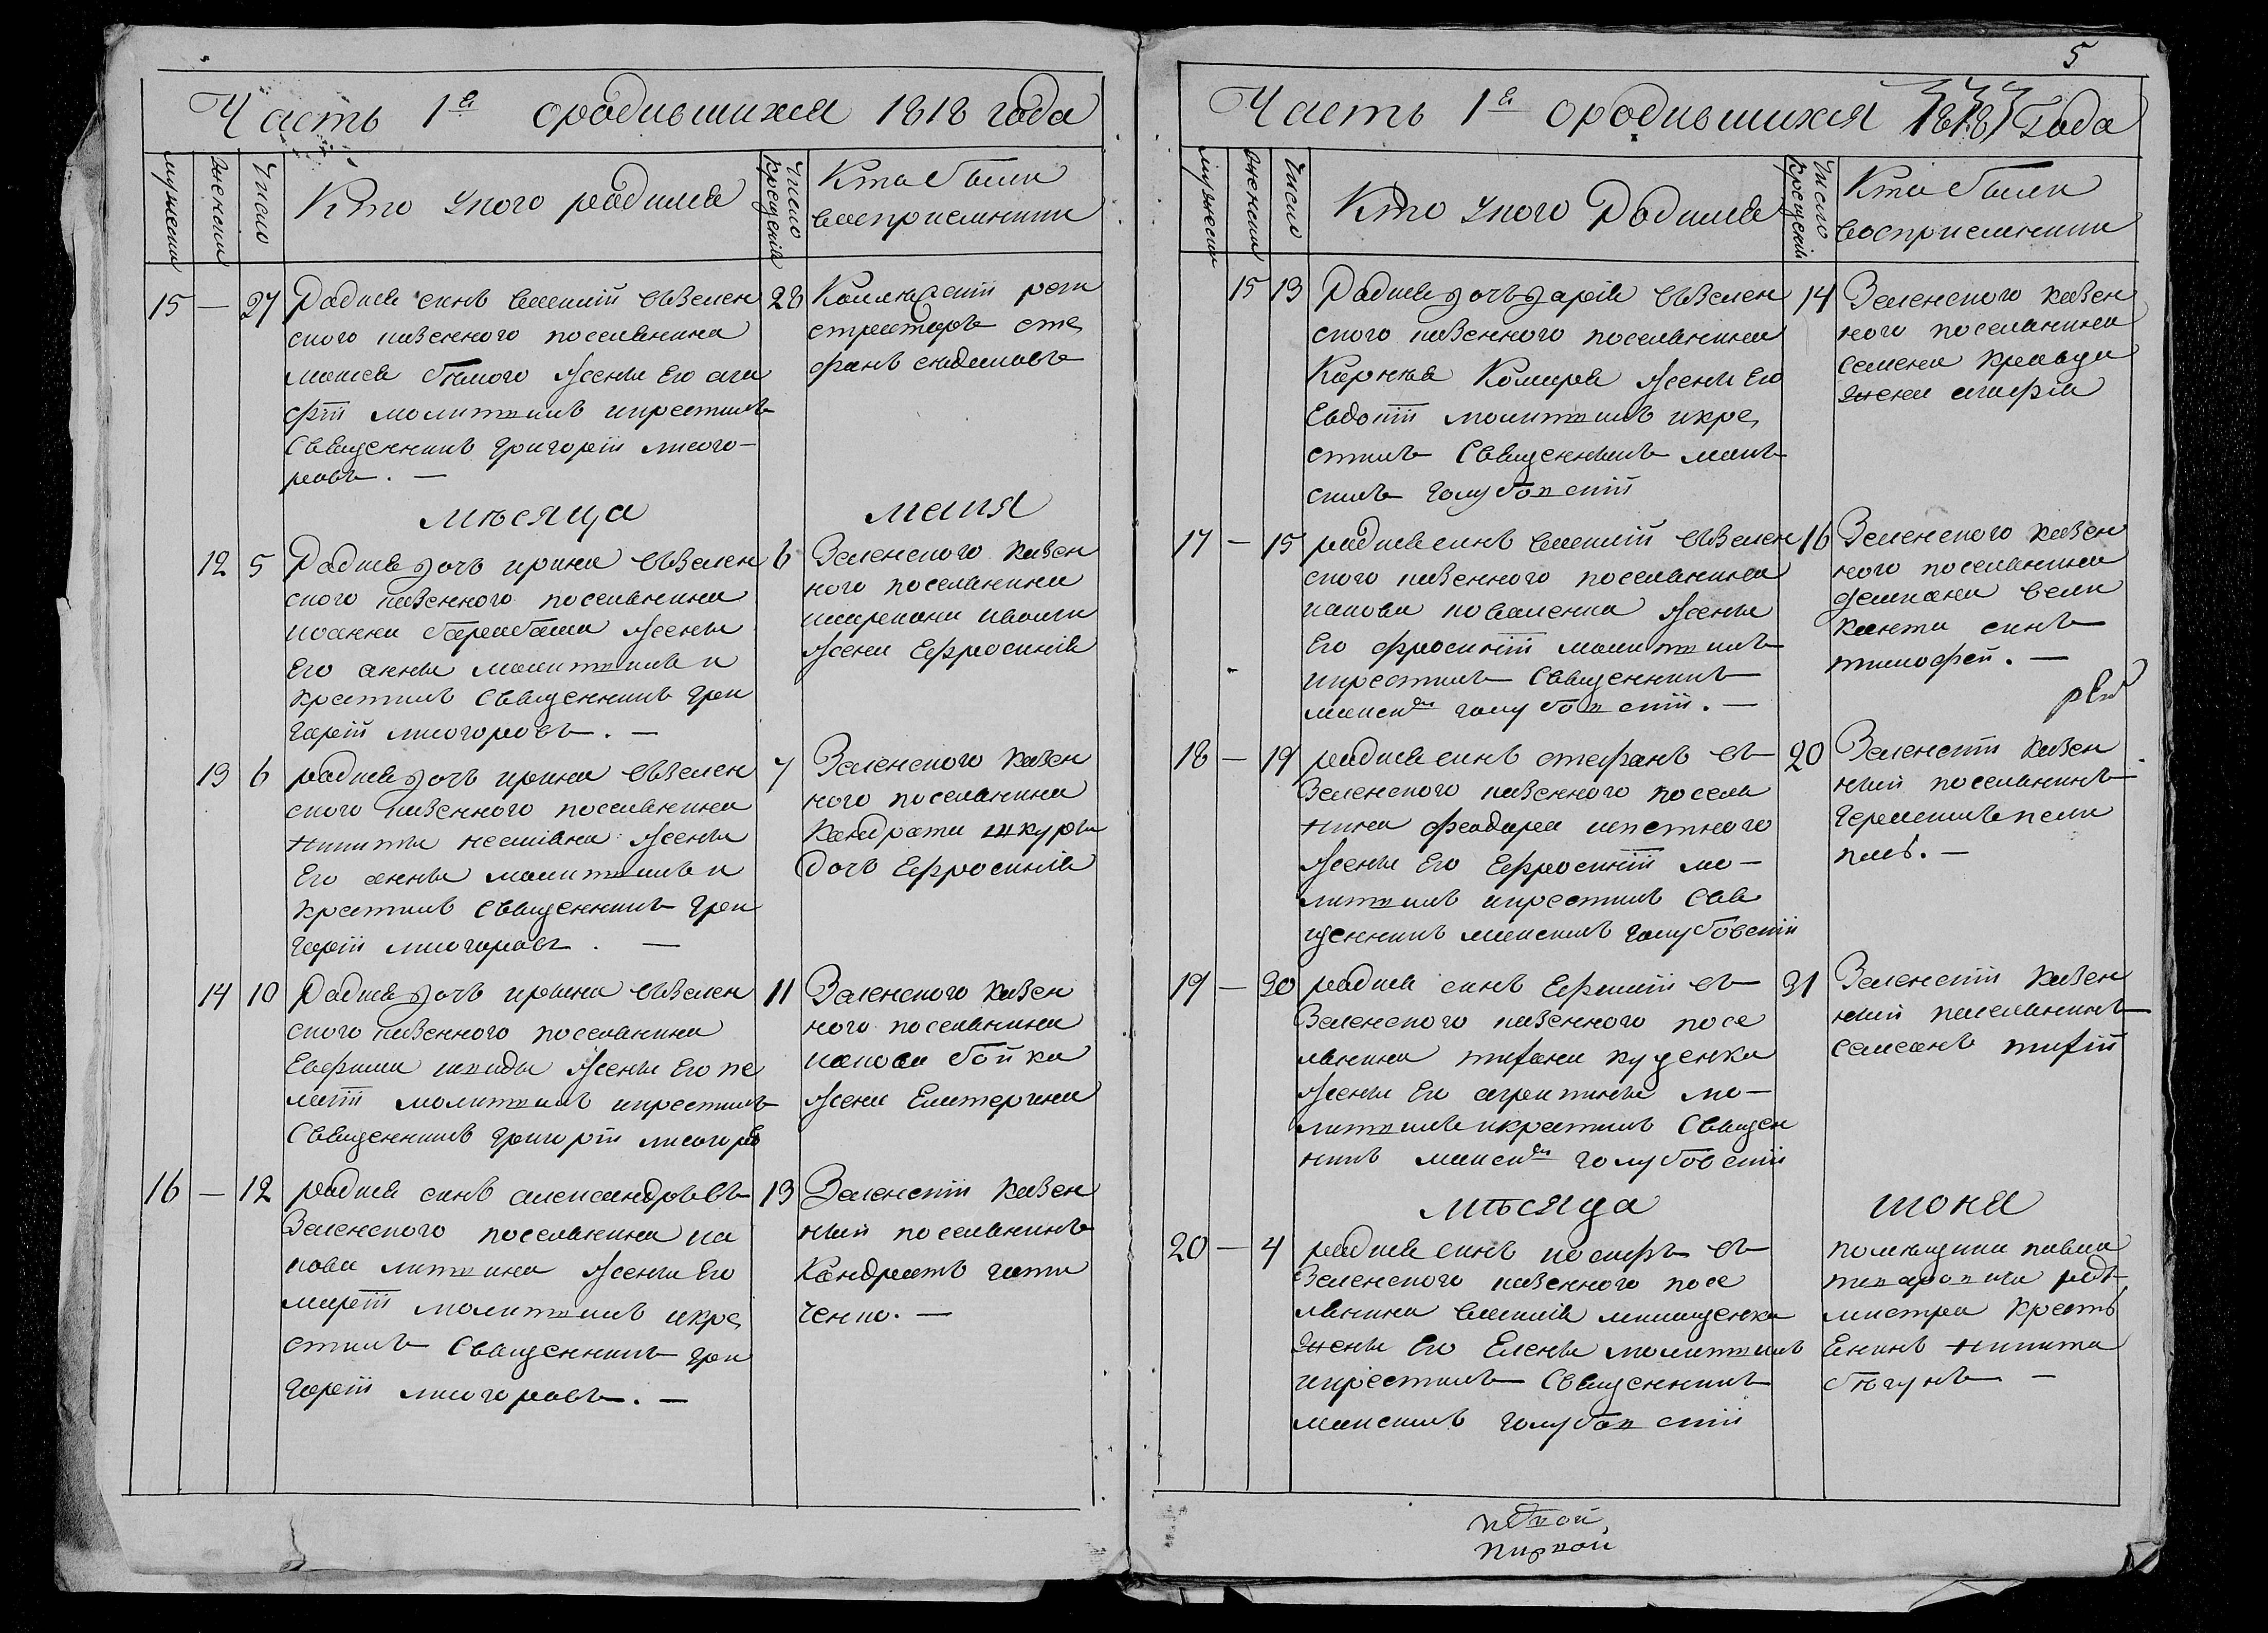 Часть 1я ородившихся 1818 года
мужеска
женска
Число
Кто Укого родился
Число крещенія
Кто были
восприемники
15 — 27 Родися синъ василій
ского казенного поселянина
Моисея белого жены Его ага
фіи молитвилъ икрестилъ
Священникъ Григорій лисого-
ровъ. —
28 Коллежскій реги
страторъ сте
фанъ
Мѣсяца маия
12 5 Родися дочь ирина взелен
ского казенного поселянина
иоанна жены
Его анны молитвилъ и
крестилъ Священникъ гри
горій лисогоровъ. —
6 Зеленского казен
ного поселянина
ивана
жена Ефросинія
13 6 родися дочь ирина взелен
ского казенного поселянина
никиты жены
Его анны молитвилъ и
крестилъ Священникъ гри
горій лисогоровъ. —
7 Зеленского казен
ного поселянина
Кондрата шкуры
дочь Ефросинія
14 10 Родися дочь ирина взелен
ского казенного поселянина
Евфима жены Его пе
лагіи молитвилъ икрестилъ
Священникъ григорій лисогоро
11 Зеленского казен
ного поселянина
иакова бойка
жена Екатерина
16 — 12 родися синъ александръ въ
Зеленского поселянина иа
кова литвина жены Его
маріи молитвилъ икре
стилъ Священникъ гри
горій лисогоровъ. —
13 Зеленскій казен
ний поселянинъ
Кондратъ гати
ченко. —
5
Часть 1я ородившихся 1818 Года
мужеска
женска
Число
Кто Укого Родился
Число крещенія
Кто были
восприемники
15 13 Родися дочь дарія взелен
ского казенного поселянина
Корнея Комара жены Его
Евдокіи молитвилъ икре
стилъ Священникъ мак
симъ голубовскій
14 Зеленского казен
ного поселянина
семена кравца
жена агафія
17 — 15 родися синъ василій взелен
ского казенного поселянина
иакова коваленка жены
Его фросиніи молитвилъ
икрестилъ Священникъ
максимъ голубовскій. —
16 Зеленского казен
ного поселянина
демяна вели
канта синъ
тимофей. —
18 — 19 родися синъ стефанъ въ
Зеленского казенного поселя
нина феодора
жены Его Ефросиніи мо-
литвилъ икрестилъ Свя
щенникъ максимъ голубовскій
20 Зеленскій казен
ний поселянинъ
герасимъ пили
пась. —
19 — 30 родися синъ Ефимій въ
Зеленского казенного посе
лянина трифона куценка
жены Его агрипины мо-
литвилъ икрестилъ Священ
никъ максимъ голубовскій
31 Зеленскій казен
ний поселянинъ
самсонъ
Мѣсяца июня
20 — 4 родися синъ иосифъ въ
Зеленского казенного посе
лянина василія мищенка
жены Его Елены молитвилъ
икрестилъ Священникъ
максимъ голубовскій
помещика павла
рот-
мистра кресть
Енинъ никита
бѣгунъ —